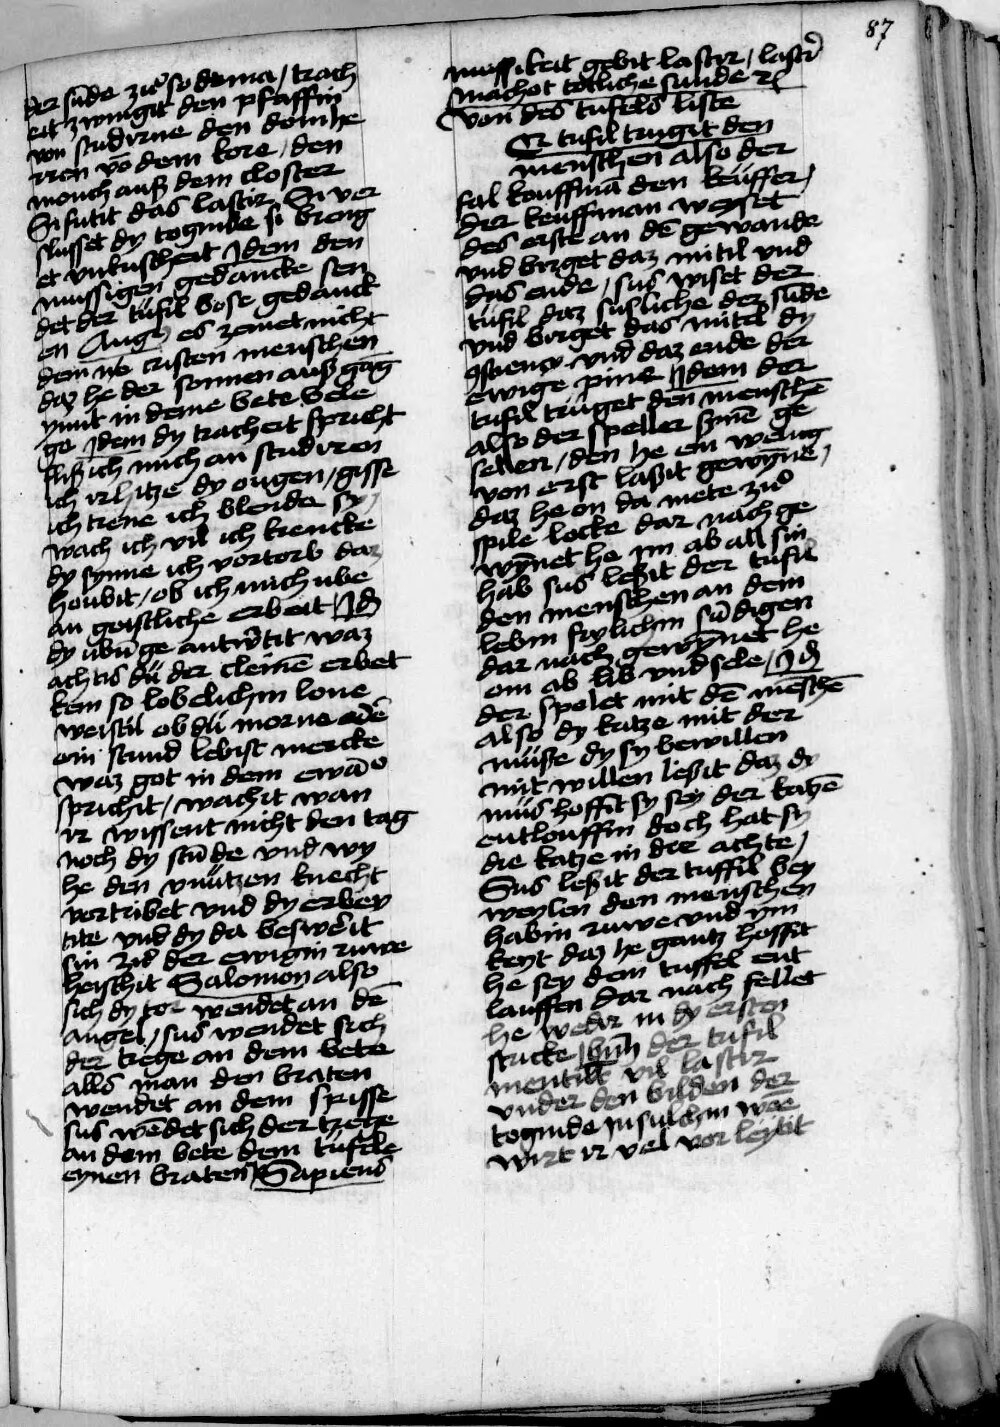 87
der sūde zur sodoma / trach
eit zwingit den pfaffin
von studirne den domhe
rren vō dem kore / den
monch auß dem closter
Si futit das lastir Si ver
slusset dy toginde si breng
et vnkuscheit Jdem den
mussigen gedancke sen
det der tüfil bose gedanck
en Aug9 es zemet nicht
dem ne cristen menschen
daz he der sonnen auß gāg
ymit in deme bete bele
ge Jdem dy tracheit spricht
fliß ich mich an studiren
ich irhitze dy ougen / gisse
ich trene ich blende sy /
wach ich vil ich krencke
dy synne ich vortorb daz
houbit / ob ich mich ube
an geistliche erbeit Jd
dy ubūge antwʼtit waz
achtis dü der cleinē erbet
kein so lobelichim lone
weistü ob dü morne adʼ
ein stund lebist mercke
waz got in dem ewāº
sprichit / wachit wan
ir wissent nicht den tag
noch dy stūde vnd wy
he den vnützen knecht
vortribet vnd dy erbey
tite vnd dy da beswʼit
sin zuʼ der ewigin ruwe
heischit Salomon also
sich dy tor wendet an dē
angel / sus wendet sich
der trege an dem bete
alls man den braten
wendet an dem spisse
sus wēdet sich der trege
an dem bete dem tüfele
eynen braten Sapiens
mussikeit gebit lastir / lastʼ
machot totliche sunde ꝛc
Von des tüfels liste
Er tufil trugit den
menschen also der
fal kouffmā den keüffer /
der keuffman weyset
des erste an dē gewande
vnd birget daz mitil vnd
das ende / sus wiset der
tüfil daz susliche der sūde
vnd birget das mitel dy
vnd daz ende der
ewige pine Jdem der
tufil trüget den menschē
also der speller synē ge
sellen / den he ein wenig
von erst lasit gewyne /
daz he on da mete zuʼ
spile locke dar nach ge
wȳnet he im ab all sin
hab sus leßit der tüfil
den menschen an dem
lebin frylichin sūdigen
dar nach gewȳnet he
om ab lib vnd sele / Jd
der spelet mit dē mēschē
also dy katze mit der
müße dy sy bewillen
mit willen leßit daz dy
müs hoffit sy sey der katzē
entlouffin doch hat sy
die katze in die achte /
Sus leßit der tuffil bey
weylen den menschen
habin ruwe vnd ynn
keyt daz he gantz hoffit
he sey dem tuffel ent
lauffen dar nach fellet
he wedir in dy ersten
stricke der tufil
mentilt vil lastir
vnder den bilden der
toginde in sulchin wēē
wirt ir vel vor leytit